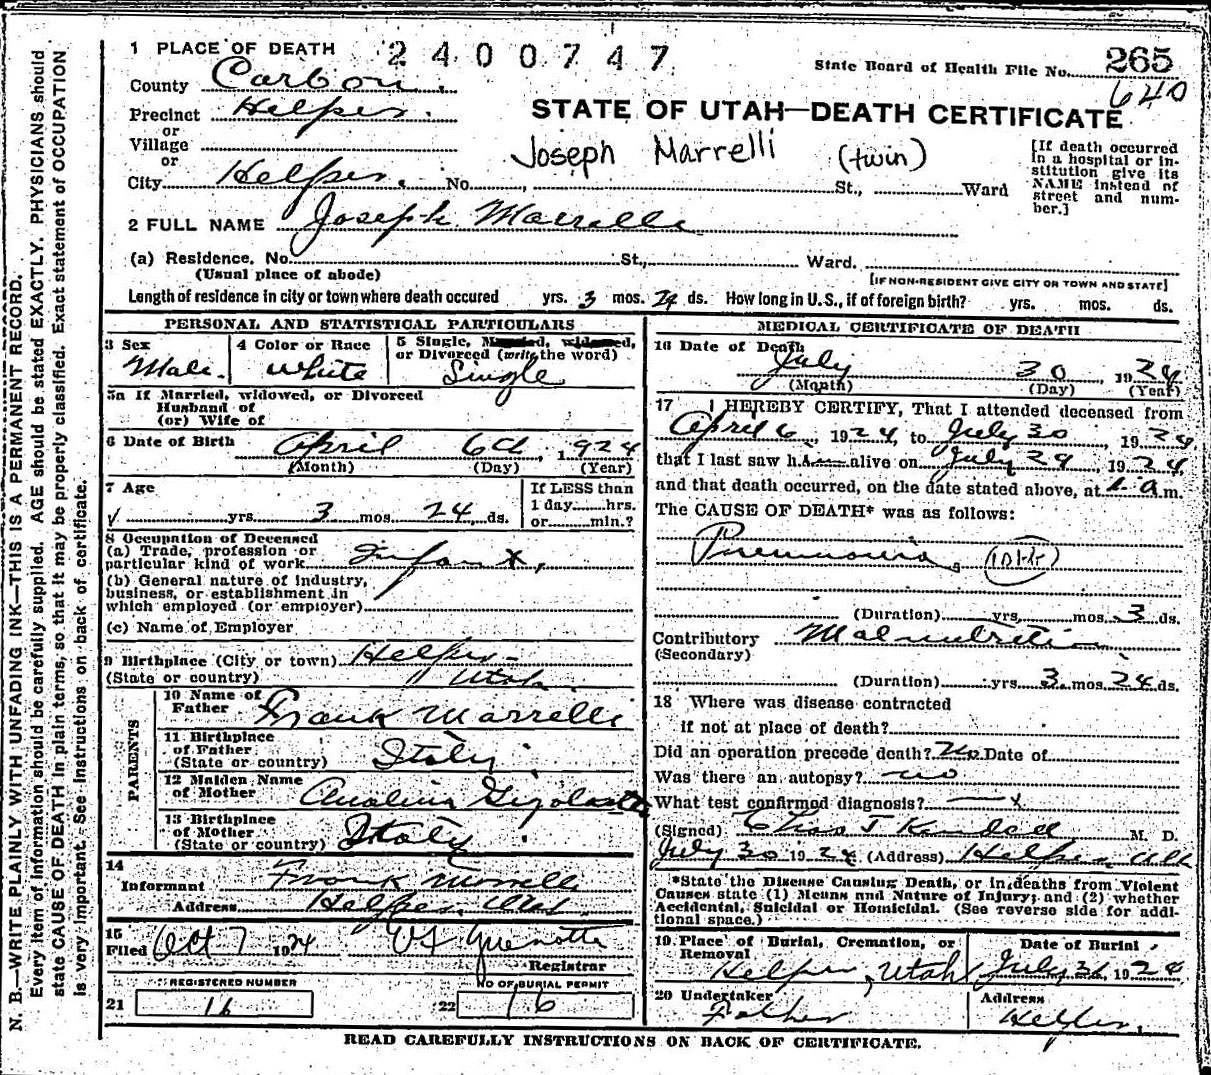 1 PLACE OF DEATH 2400747
State Board of Health File No. 265
640
County Carbon.
Precinct Helper.
or
Village
or
City Helper. No. , St., Ward
STATE OF UTAH—DEATH CERTIFICATE
Joseph Marrelli (twin)
[If death occurred
in a hospital or in-
stitution give its
NAME instead of
street and num-
ber.]
2 FULL NAME Joseph Marrelli
(a) Residence, No. St., Ward.
(Usual place of abode)
[IF NON-RESIDENT GIVE CITY OR TOWN AND STATE]
Length of residence in city or town where death occured yrs. 3 mos. 24 ds. How long in U.S., if of foreign birth? yrs. mos. ds.
PERSONAL AND STATISTICAL PARTICULARS
3 Sex
Male.
4 Color or Race
White
5 Single, Married, widowed,
or Divorced (write the word)
Single
5a If Married, widowed, or Divorced
Husband of
(or) Wife of
6 Date of Birth April 6th, 1924
(Month) (Day) (Year)
7 Age
yrs. 3 mos. 24 ds.
If LESS than
1 day hrs.
or min.?
8 Occupation of Deceased
(a) Trade, profession or
particular kind of work Infant,
(b) General nature of industry,
business, or establishment in
which employed (or employer)
(c) Name of Employer
9 Birthplace (City or town) Helper-
(State or country) Utah.
PARENTS
10 Name of
Father Frank Marrelli
11 Birthplace
of Father
(State or country) Italy.
12 Maiden Name
of Mother
13 Birthplace
of Mother
(State or country) Italy
14
Informant Frank Morrelli
Address Helper, Utah
15
Filed Oct 7 1924
Registrar
REGISTERED NUMBER
21 16
NO OF BURIAL PERMIT
22 16
MEDICAL CERTIFICATE OF DEATH
16 Date of Death
July 30, 1924
(Month) (Day) (Year)
17 I HEREBY CERTIFY, That I attended deceased from
April 6, 1924, to July 30, 1924,
that I last saw him alive on July 29, 1924,
and that death occurred, on the date stated above, at 1. a.m.
The CAUSE OF DEATH* was as follows:
Pneumonia.
(Duration) yrs. mos. 3 ds.
Contributory Malnutrition
(Secondary)
(Duration) yrs. 3 mos. 24 ds.
18 Where was disease contracted
if not at place of death?
Did an operation precede death? No Date of
Was there an autopsy? no
What test confirmed diagnosis?
(Signed) Chas T Kendall M. D.
July 30 1924 (Address) Helper Utah
*State the Disease Causing Death, or in deaths from Violent
Causes state (1) Means and Nature of Injury; and (2) whether
Accidental, Suicidal or Homicidal. (See reverse side for addi-
tional space.)
19 Place of Burial, Cremation, or
Removal
Helper, Utah
Date of Burial
July 31 1924
20 Undertaker
Father
Address
Helper.
READ CAREFULLY INSTRUCTIONS ON BACK OF CERTIFICATE.
N. B.—WRITE PLAINLY WITH UNFADING INK—THIS IS A PERMANENT RECORD.
Every item of information should be carefully supplied. AGE should be stated EXACTLY. PHYSICIANS should
state CAUSE OF DEATH in plain terms, so that it may be properly classified. Exact statement of OCCUPATION
is very important. See instructions on back of certificate.